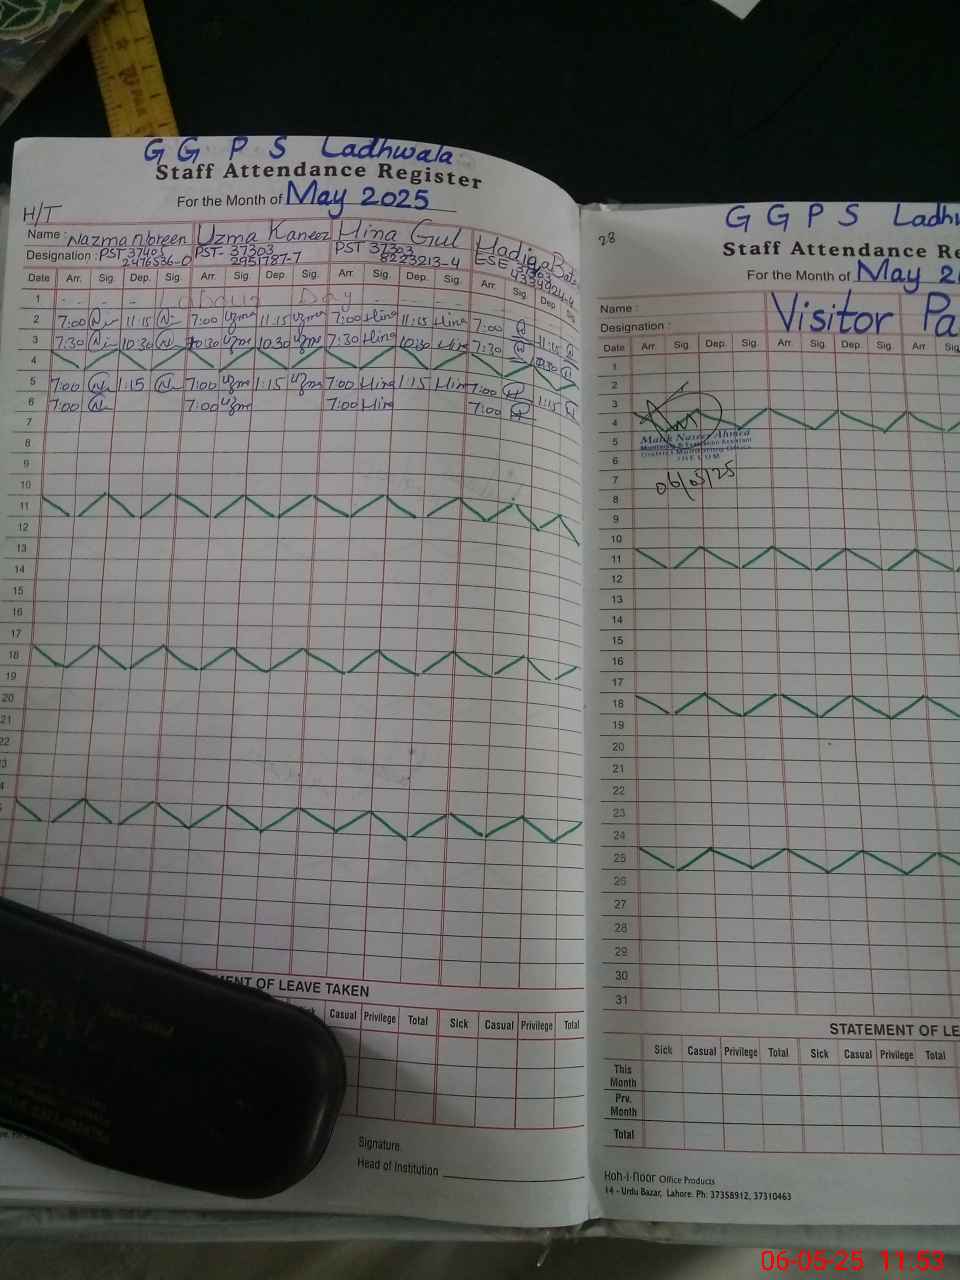 G G P S Ladhwala
Staff Attendance Register
For the Month of May 2025
H/T
Name : Nazma Noreen Uzma Kaneez Hina Gul Hadiqa
Designation : PST 37403 PST- 37303 PST 37303 ESE
2476536-0 2951787-7 8223213-4 4334924-4
Date Arr. Sig. Dep. Sig. Arr. Sig. Dep. Sig. Arr. Sig. Dep. Sig. Arr. Sig. Dep. Sig.
1 Labour Day
2 7:00 11:15 7:00 Uzma 11:15 Uzma 7:00 Hina 11:15 Hina 7:00 11:15
3 7:30 10:30 Uzma 10:30 Uzma 7:30 Hina 10:30 Hina 7:30 10:30
4
5 7:00 1:15 7:00 Uzma 1:15 Uzma 7:00 Hina 1:15 Hina 7:00 1:15
6 7:00 7:00 Uzma 7:00 Hina 7:00
7
8
9
10
11
12
13
14
15
16
17
18
19
20
21
22
OF LEAVE TAKEN
Casual Privilege Total Sick Casual Privilege Total
Signature.
Head of Institution
28
G G P S
Staff Attendance
For the Month of May
Name :
Designation :
Visitor
Date Arr. Sig. Dep. Sig. Arr. Sig. Dep. Sig. Arr. Sig.
1
2
3
4
5
6
7
8
9
10
11
12
13
14
15
16
17
18
19
20
21
22
23
24
25
26
27
28
29
30
31
Malik Naseer Ahmed
Monitoring & Evaluation Assistant
District Monitoring Office
JHELUM
06/05/25
STATEMENT OF
Sick Casual Privilege Total Sick Casual Privilege Total
This
Month
Prv.
Month
Total
Koh-I-Noor Office Products
14 - Urdu Bazar, Lahore. Ph: 37358912, 37310463
06-05-25 11:53